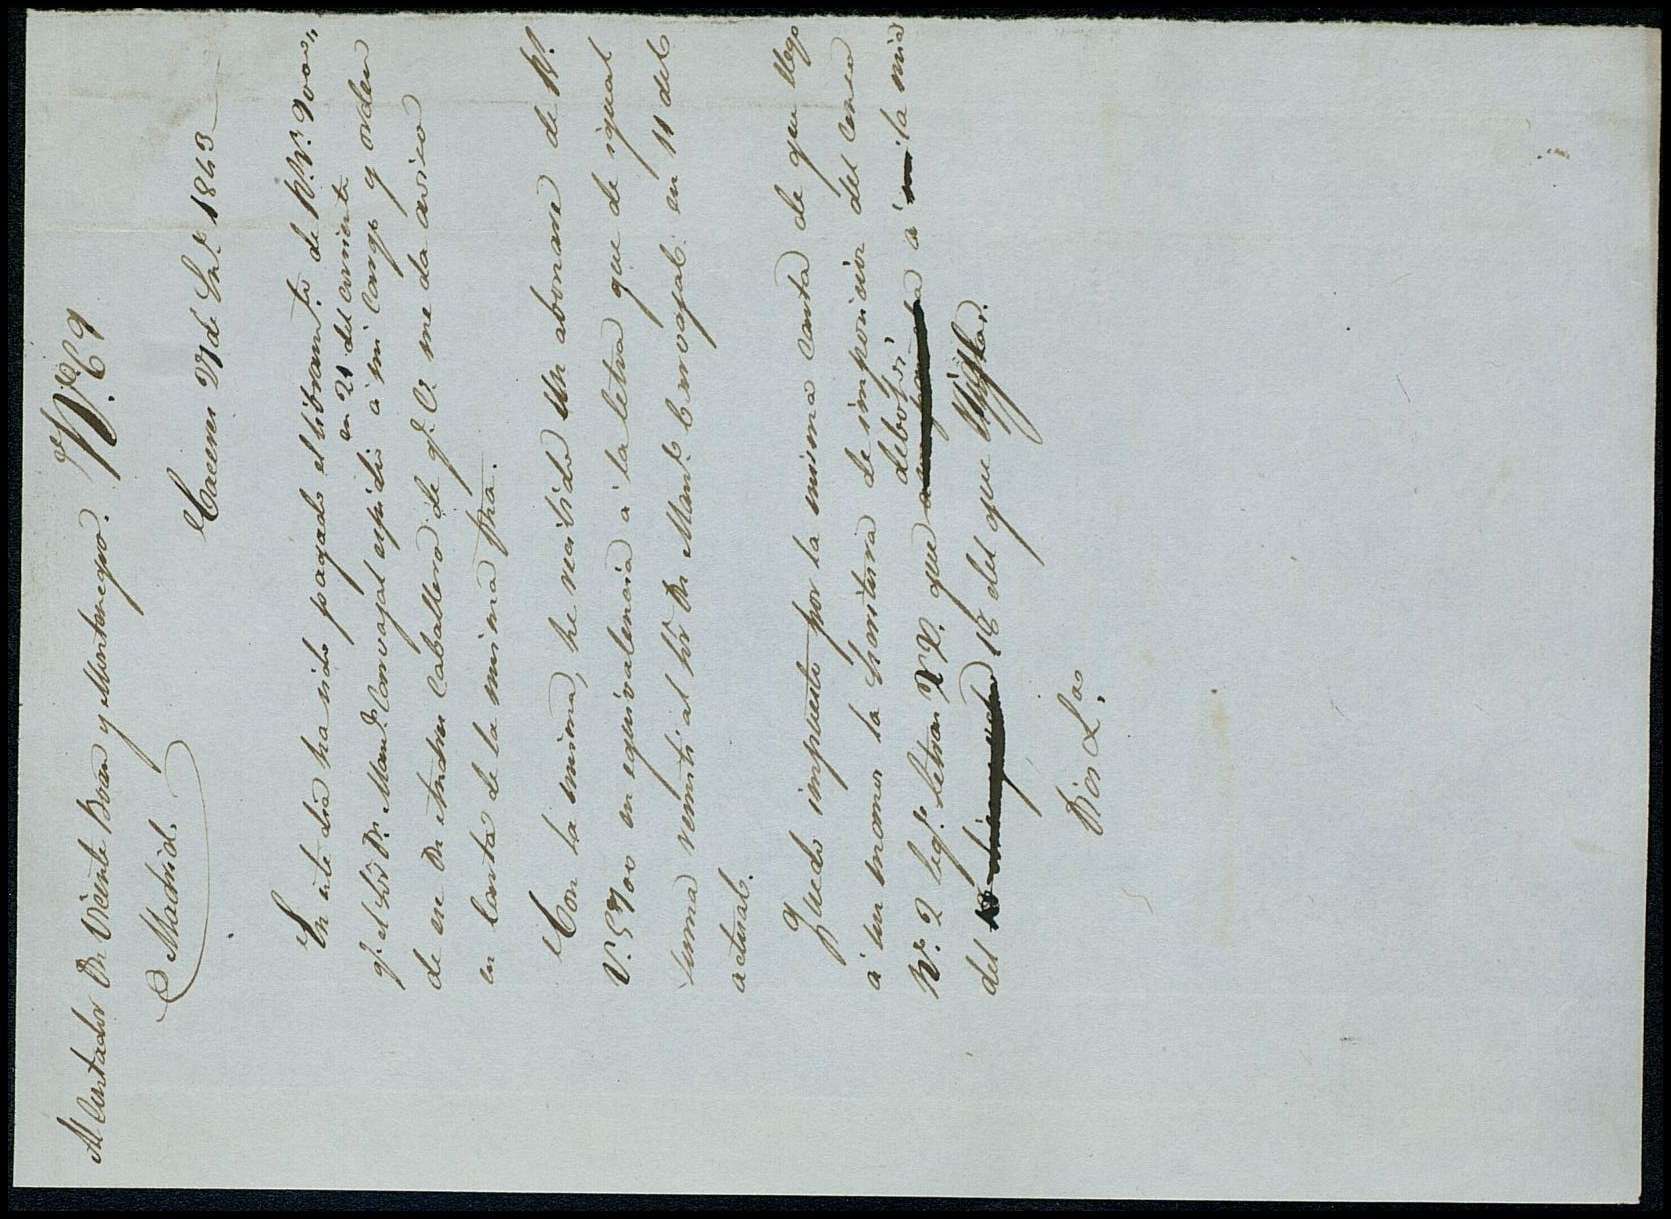 Al Contador Dn Vicente Boan y Montenegro. N.º 69
Madrid.
Caceres 27 de En.º 1843
En este dia ha sido pagado el libram.to de R.s V.n 9000,,
en 21 del corriente
q.e el Sór Dn. Man.l Carvajal espidió á mi Cargo y orden
de ese Dn Andres Caballero de q.e V. me da aviso
en Carta de la misma fha.
Con la misma, he recibido un abonaré de R.s
V.n 5700 en equivalencia á la letra que de igual
suma remití al Sór Dn Man.l Carvajal en 11 del
actual.
Quedo impuesto por la misma Carta de que llegó
á sus manos la Escritura de imposicion del Censo
debolví
N.º 2 leg.º letra X. que á la mia
del 18 del que
Dios L. as